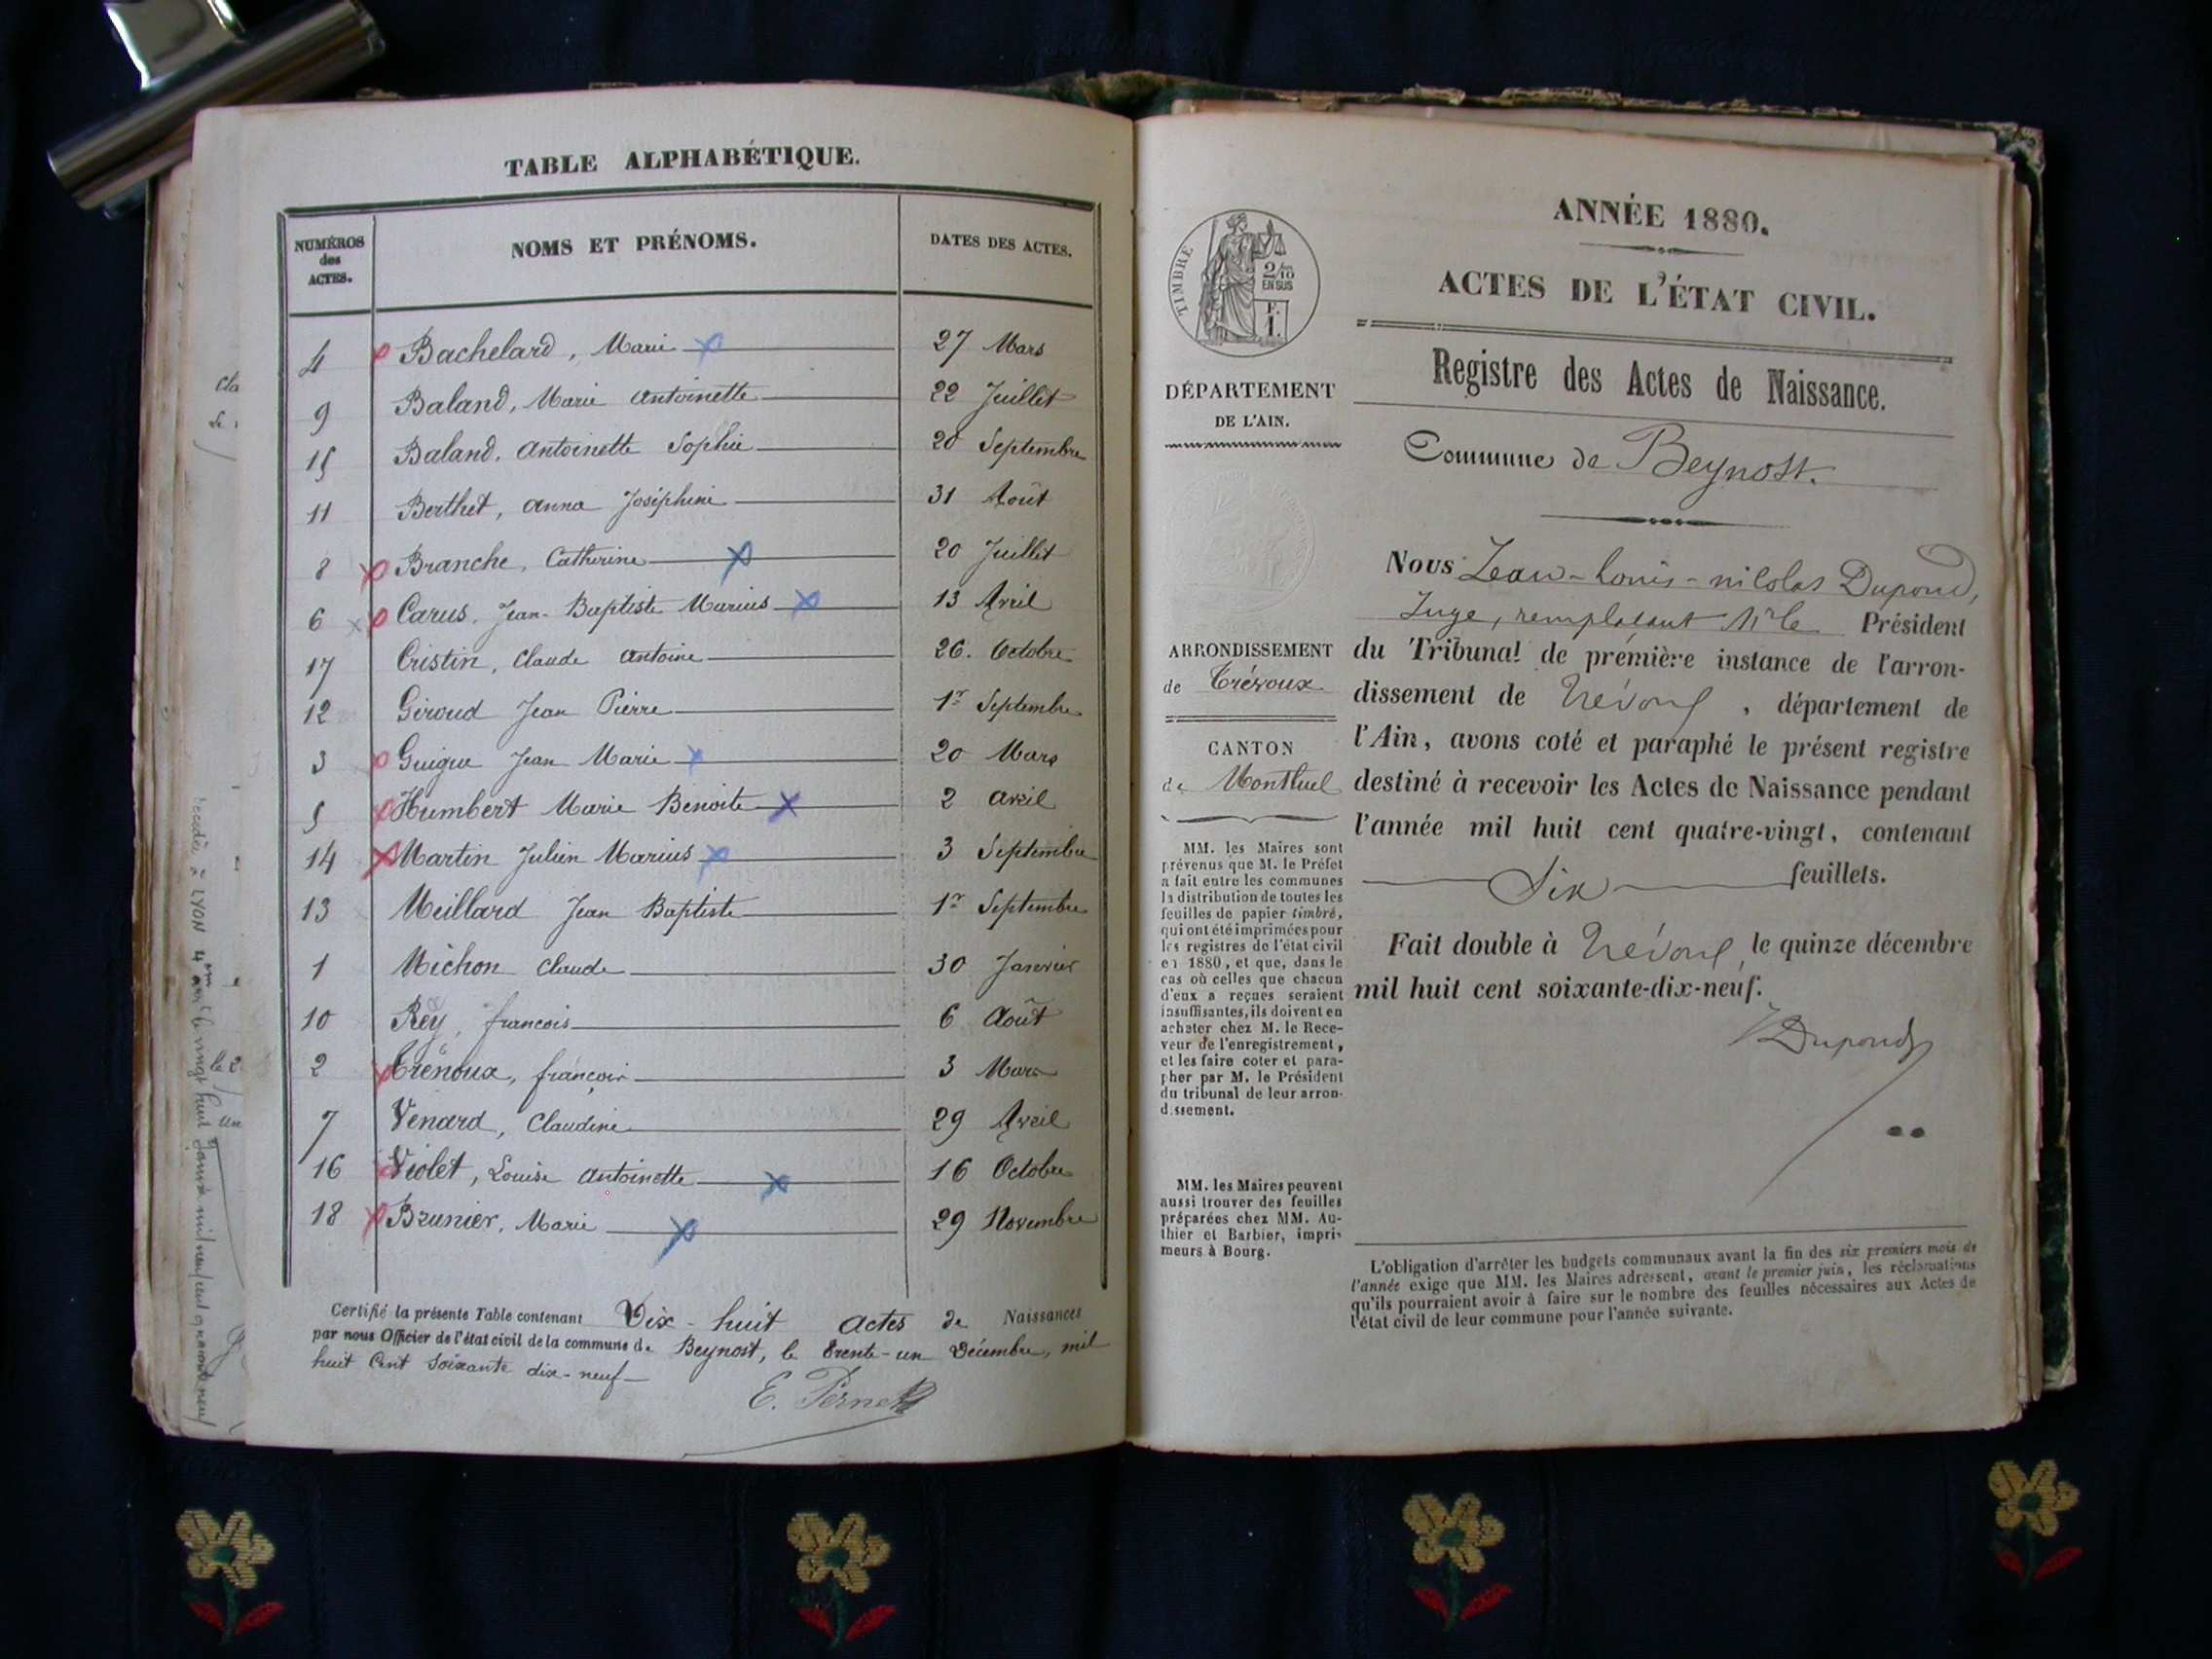 TABLE ALPHABÉTIQUE.
NUMÉROS des ACTES. NOMS ET PRÉNOMS. DATES DES ACTES.
4 Bachelard, Marie 27 Mars
9 Baland, Marie Antoinette 22 Juillet
15 Baland, Antoinette Sophie 20 Septembre
11 Berthet, Anna Joséphine 31 Août
8 Branche, Catherine 20 Juillet
6 Carus, Jean-Baptiste Marius 13 Avril
17 Cristin, Claude Antoine 26. Octobre
12 Giroud Jean Pierre 1er Septembre
3 Guigue Jean Marie 20 Mars
5 Humbert Marie Benoite 2 Avril
14 Martin Julien Marius 3 Septembre
13 Meillard Jean Baptiste 1er Septembre
1 Michon Claude 30 Janvier
10 Rey, françois 6 Août
2 Trénoux, françois 3 Mars
7 Venard, Claudine 29 Avril
16 Violet, Louise Antoinette 16 Octobre
18 Brunier, Marie 29 Novembre
Certifié la présente Table contenant Dix-huit actes de Naissances
par nous Officier de l'état civil de la commune de Beynost, le trente-un Décembre, mil
huit Cent soixante dix-neuf
E. Pernet
TIMBRE
2/10
EN SUS
F.
1.
DÉPARTEMENT
DE L'AIN.
ARRONDISSEMENT
de Trévoux.
CANTON
de Montluel
MM. les Maires sont
prévenus que M. le Préfet
a fait entre les communes
la distribution de toutes les
feuilles de papier timbré,
qui ont été imprimées pour
les registres de l'état civil
en 1880, et que, dans le
cas où celles que chacun
d'eux a reçues seraient
insuffisantes, ils doivent en
acheter chez M. le Rece-
veur de l'enregistrement,
et les faire coter et para-
pher par M. le Président
du tribunal de leur arron-
dissement.
MM. les Maires peuvent
aussi trouver des feuilles
préparées chez MM. Au-
thier et Barbier, impri-
meurs à Bourg.
ANNÉE 1880.
ACTES DE L'ÉTAT CIVIL.
Registre des Actes de Naissance.
Commune de Beynost.
Nous Jean-Louis-nicolas Dupond,
Juge, remplaçant Mr le Président
du Tribunal de première instance de l'arron-
dissement de Trévoux, département de
l'Ain, avons coté et paraphé le présent registre
destiné à recevoir les Actes de Naissance pendant
l'année mil huit cent quatre-vingt, contenant
Six feuillets.
Fait double à Trévoux, le quinze décembre
mil huit cent soixante-dix-neuf.
Dupond
L'obligation d'arrêter les budgets communaux avant la fin des six premiers mois de
l'année exige que MM. les Maires adressent, avant le premier juin, les réclamations
qu'ils pourraient avoir à faire sur le nombre des feuilles nécessaires aux Actes de
l'état civil de leur commune pour l'année suivante.